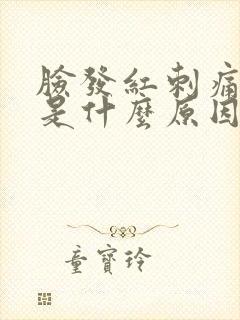 臉發紅刺痛
是什麼原因
童寶玲